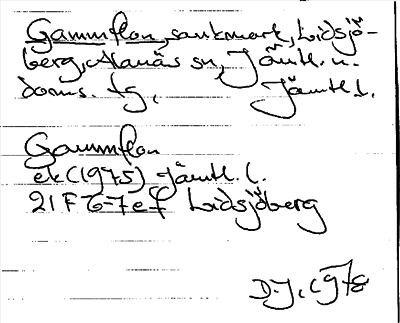 Gammflon, sankmark, Lidsjö-
berg, Alanäs sn, Jämtl. n.
doms. tg, Jämtl. l.
Gammflon
ek (1975) Jämtl. l.
21F 6-7 e f Lidsjöberg
D.J. 1978